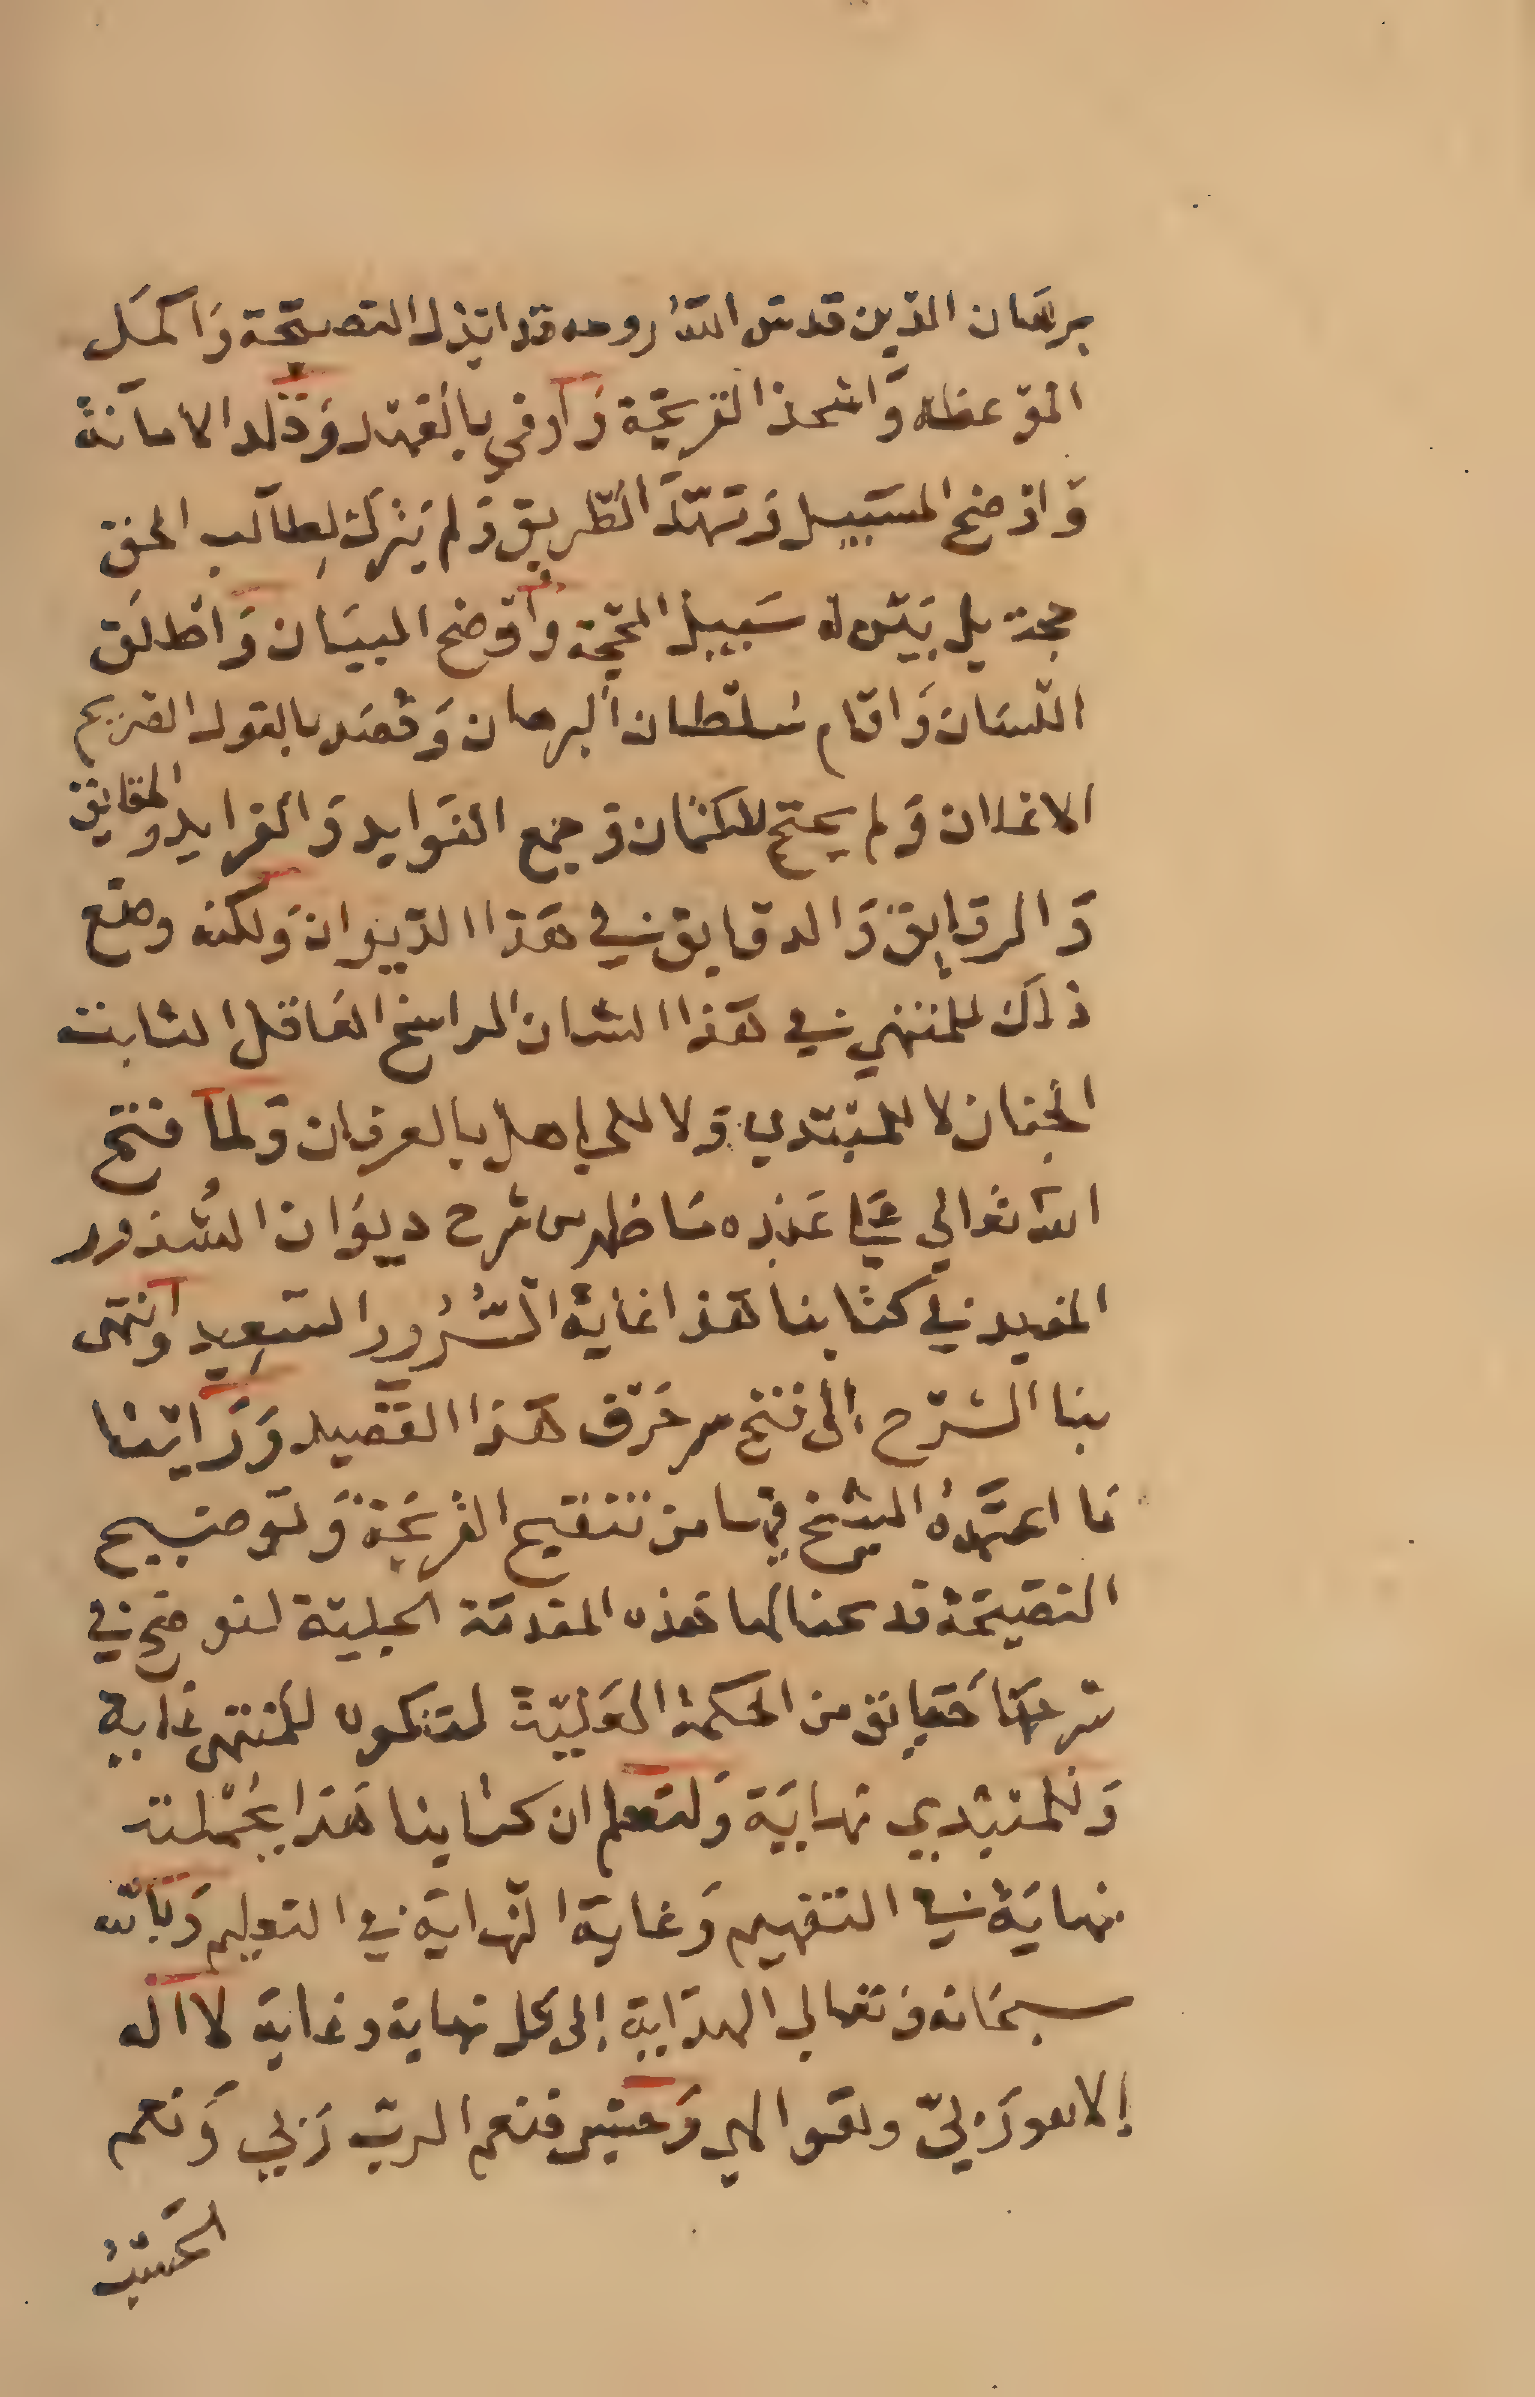 برهان الدين قدس الله روحه قد ابذل النصيحة واكمل
الموعظه واشحذ القريحة واوفي بالعهد وقلد الامانة
واوضح السبيل وسهل الطريق ولم يترك لطالب الحق
حجة بل بين له سبيل المحجة واوضح البيان واطلق
اللسان واقام سلطان البرهان وقصد بالقول الصريح
الاعلان ولم يحتج للكتمان وجمع الفوايد والفرايد والحقايق
والرقايق والدقايق في هذا الديوان ولكنه وضع
ذلك للمنتهي في هذا الشان الراسخ العاقل الثابت
الجنان لا للمبتدي ولا للجاهل بالعرفان ولما فتح
الله تعالي علي عبده ما ظهر من شرح ديوان الشذور
المفيد في كتابنا هذا غاية السرور السعيد وانتهى
بنا الشرح إلى فتح سر حرف هذا القصيد وراينا
ما اعتمده الشيخ فيها من تنقيح القريحة وتوضيح
النصيحة قد عنا لها هذه المقدمة الجلية لنوضح في
شرحنا حقايق من الحكمة العلية لتكون للمنتهى غاية
وللمبتدي هداية ولتعلم ان كتابنا هذا بجملته
نهاية في التفهيم وغاية الهداية في التعليم وبالله
سبحانه وتعالي الهداية إلى كل نهاية وغاية لا اله
إلا هو ربي وهو الهي وحسبي فنعم الرب ربي ونعم
الحسيب